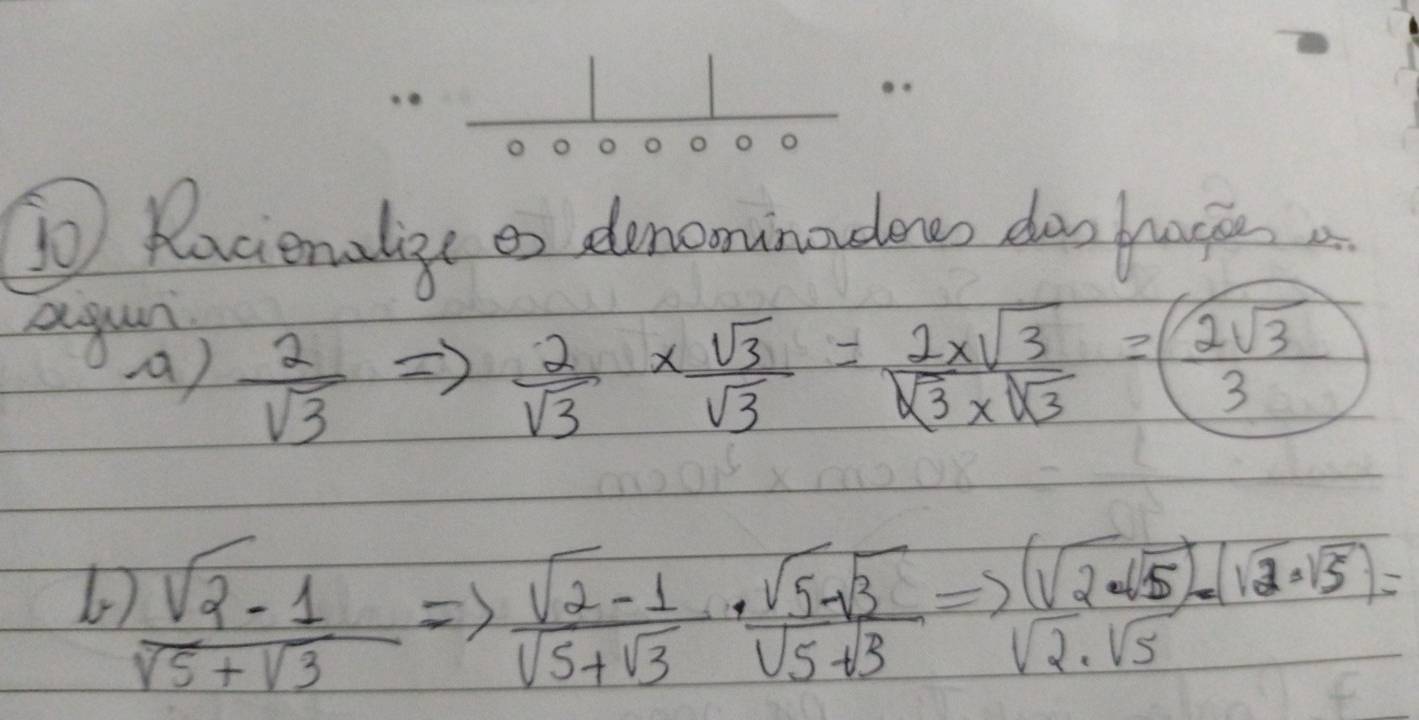 10 Racionalize os denominadores das frações a
seguir.
a) 2/√3 => 2/√3 x √3/√3 = 2x√3/√3x√3 = 2√3/3
b) √2-1/√5+√3 => √2-1/√5+√3 . √5-√3/√5-√3 => (√2.√5)-(√2.√3)/√2.√5 =